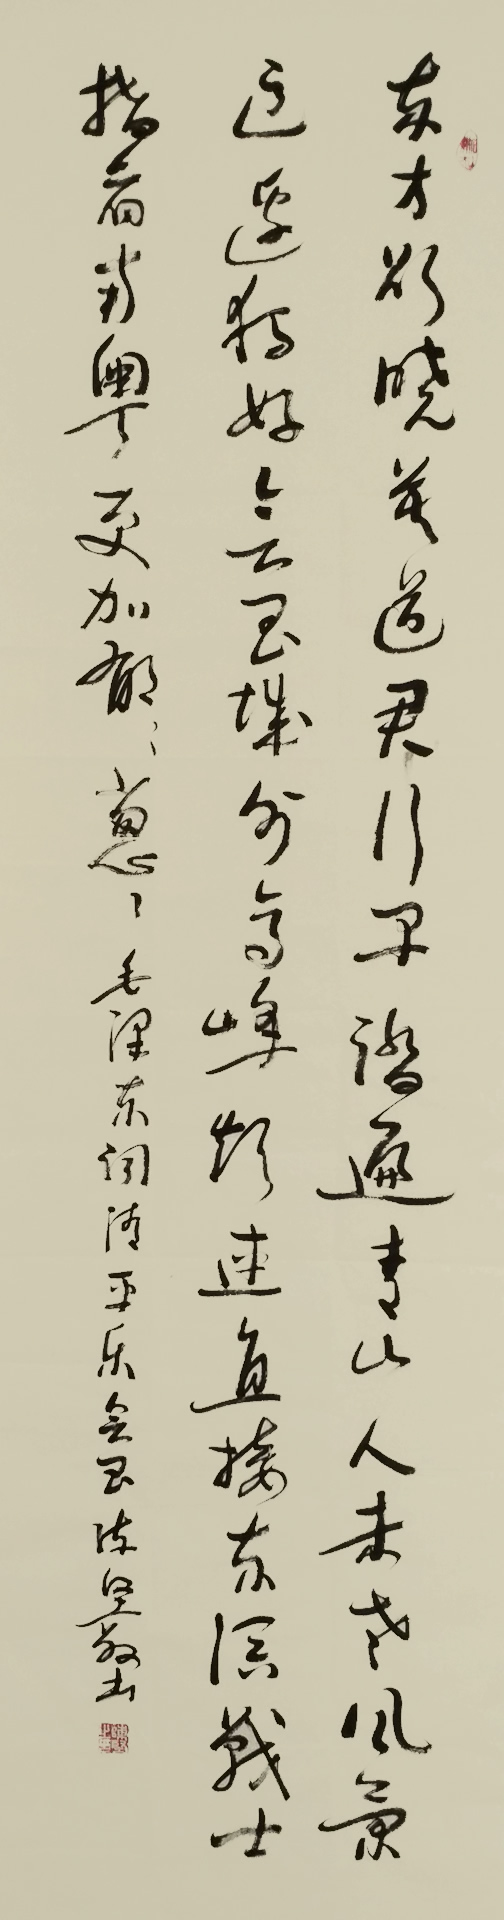 东方欲晓莫道君行早踏遍青山人未老风景
这边独好会昌城外高峰颠连直接东溟战士
指看南粤更加郁々葱々毛泽东词清平乐会昌